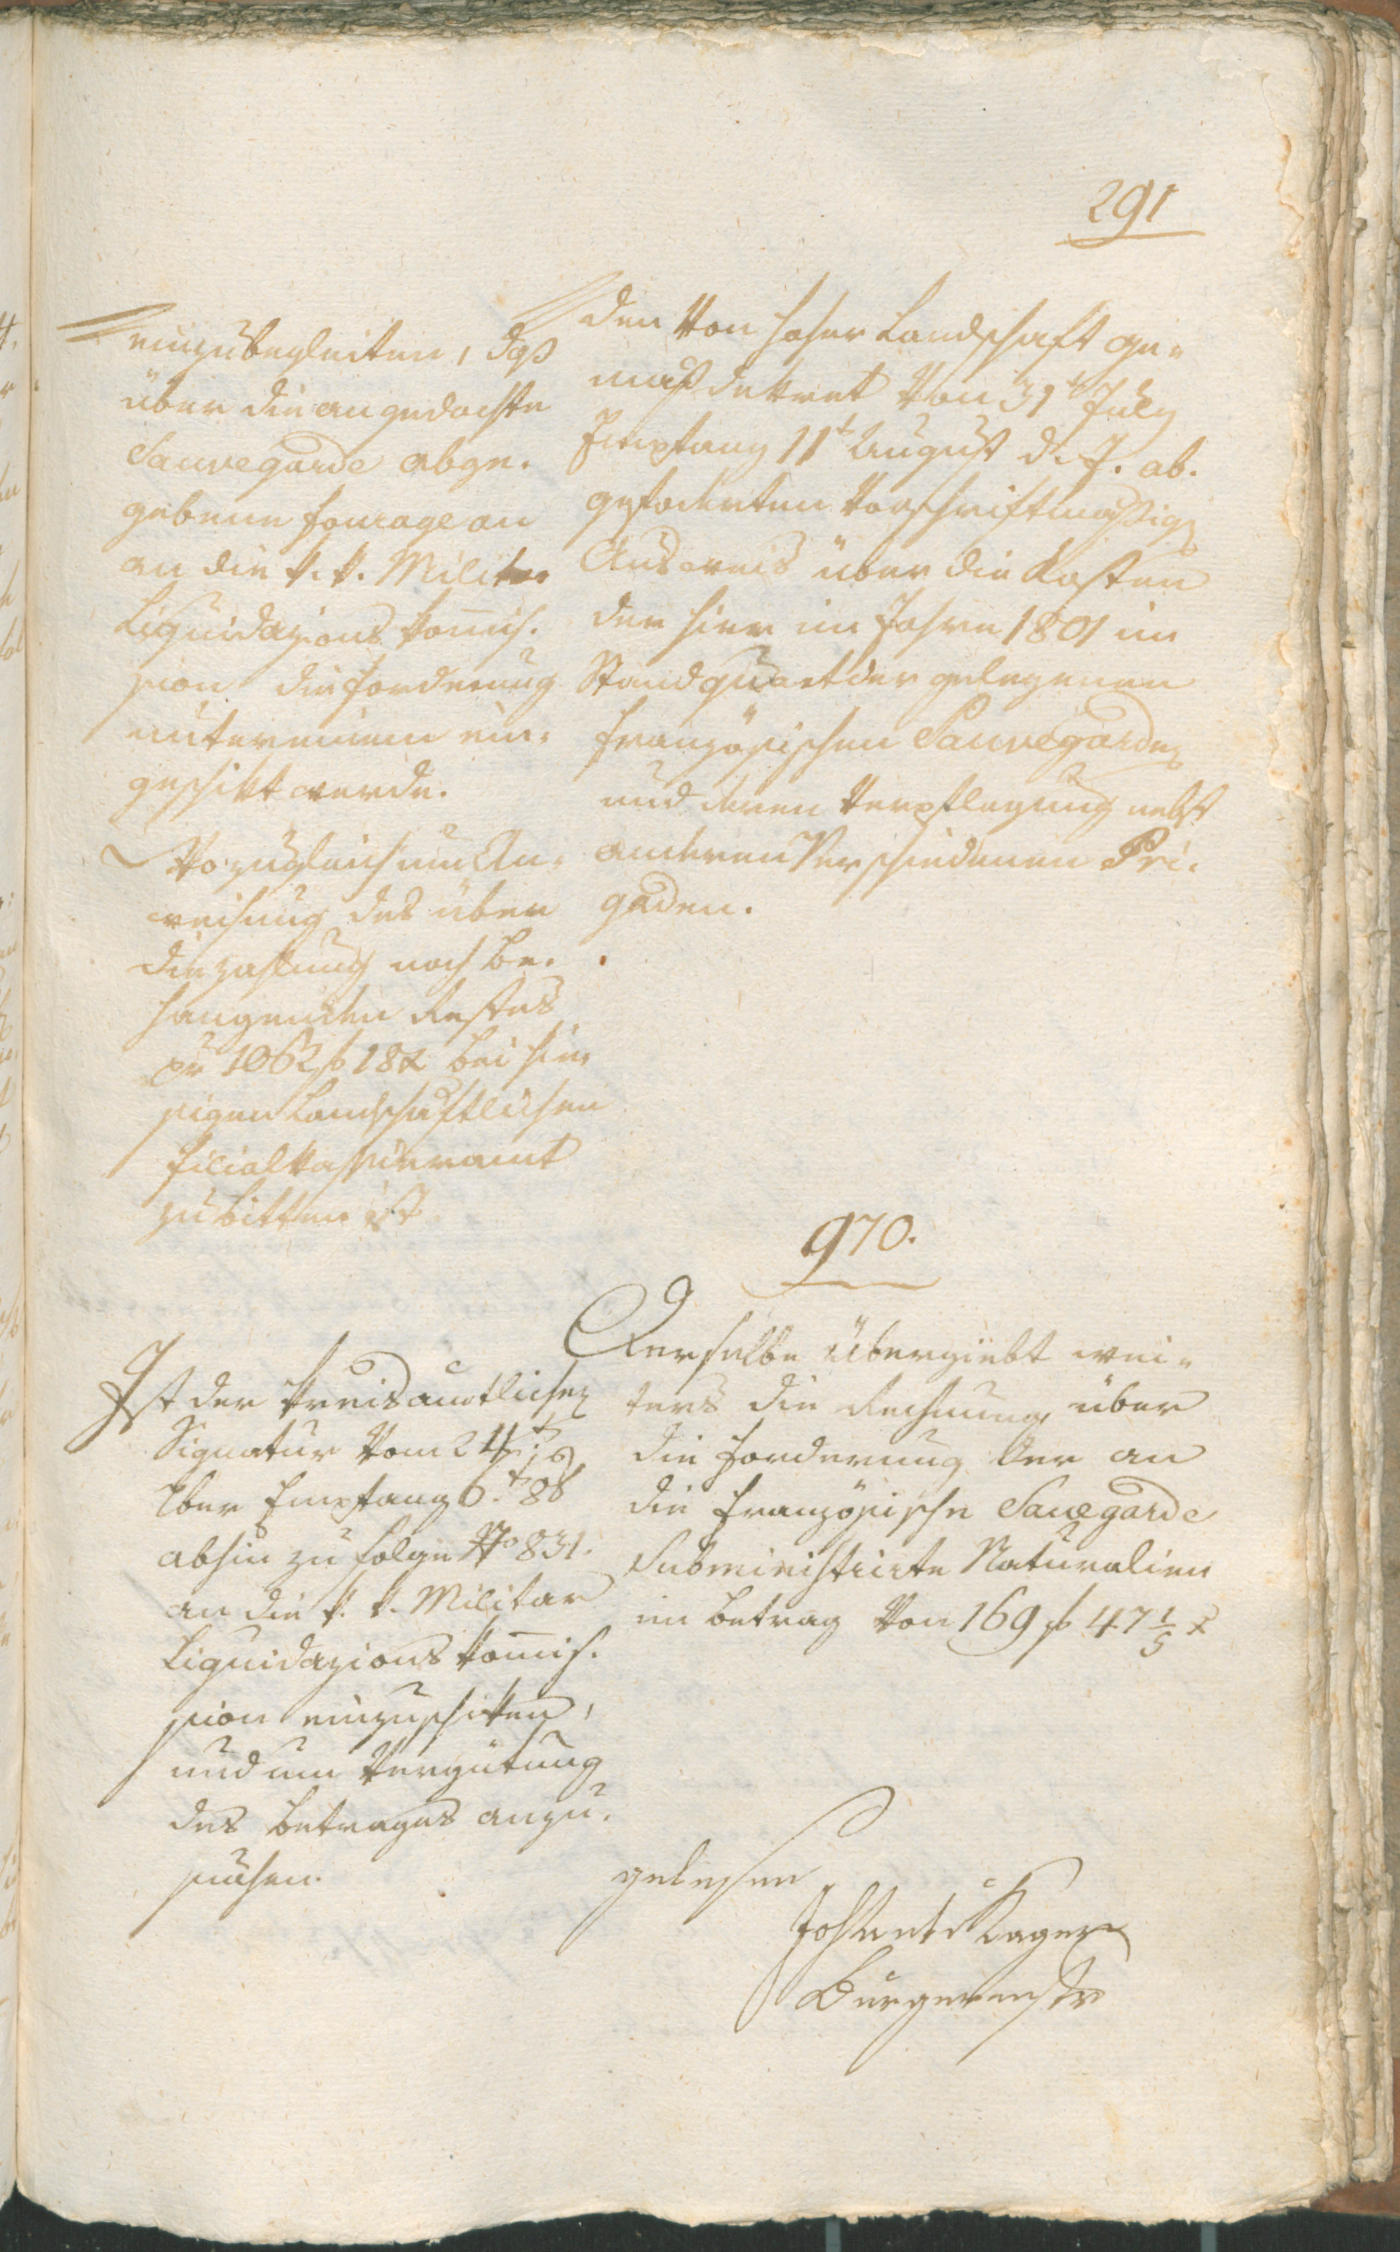 291
einzubegleiten, daß
über die an gedachte
Sauvegarde abge-
gebene Fourage an
an die k. k. Militar
Liquidazions Kom̅is-
sion die Forderung
untereinem ein-
geschikt werde.
Wo zugleich um An-
weisung des über
die Zahlung noch be-
hangenden Restes
pr 1062 f 18 x bei hie-
sigen Landschaftlichen
Filialkassieramt
zu bitten ist
den von hoher Landschaft ge-
mäß Dekret von 31t July
Empfang 11t August d. J. ab-
gefoderten vorschriftmäßigen
Ausweis über die Kosten
der hier im Jahre 1801 im
Standquartier gelegenen
französischen Sauvegarden
und deren Verpflegung nebst
anderen verschiedenen Bri-
gaden.
970.
Ist der Kreisamtlichen
Signatur vom 24t
Empfang 6t 8b
abhin zu folge No 831.
an die k. k. Militar
Liquidazions Kom̅is-
sion einzuschiken,
und um Vergütung
des Betrages anzu-
suchen.
Derselbe übergiebt wei-
ters die Rechnung über
die Forderung der an
die französische Sauvegarde
subministrirte Naturalien
im Betrag von 169 f 47 1/5 x
gelesen
Kager
Burgermstr